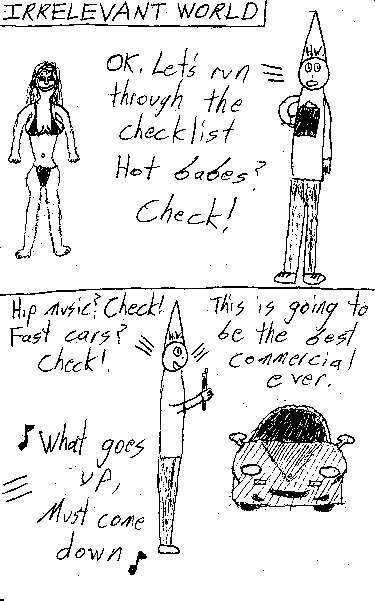 IRRELEVANT WORLD
HW
OK. Let's run
through the
checklist
Hot babes?
Check!
Hip music? Check!
Fast cars?
Check!
HW
This is going to
be the best
commercial
ever.
♪ What goes
up,
Must come
down ♪